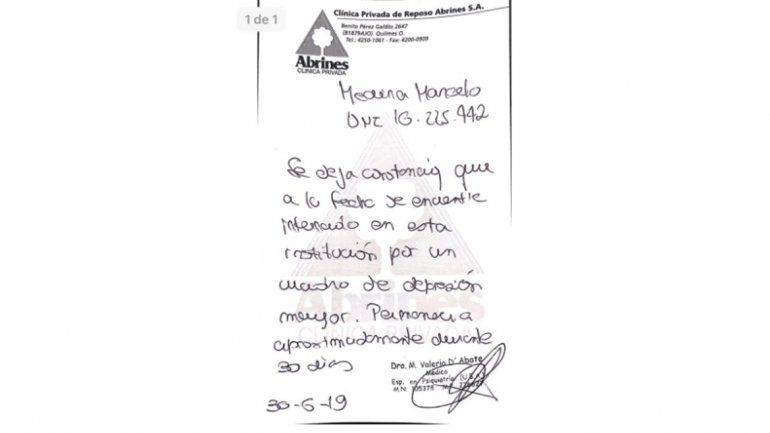 1 de 1
Clínica Privada de Reposo Abrines S.A.
Benito Pérez Galdós 2647
(B1879AJO) Quilmes O.
Tel.: 4250-1061 - Fax: 4200-0909
Abrines
CLINICA PRIVADA
Medina Marcelo
DNI 16.225.442
Se deja constancia que
a la fecha se encuentra
internado en esta
institución por un
cuadro de depresión
mayor. Permanecerá
aproximadamente durante
30 días
30-6-19
Abrines
CLINICA PRIVADA
Dra. M. Valeria D'Abate
Médico
Esp. en Psiquiatría (U.B.A.)
M.N. 105378 M.P.